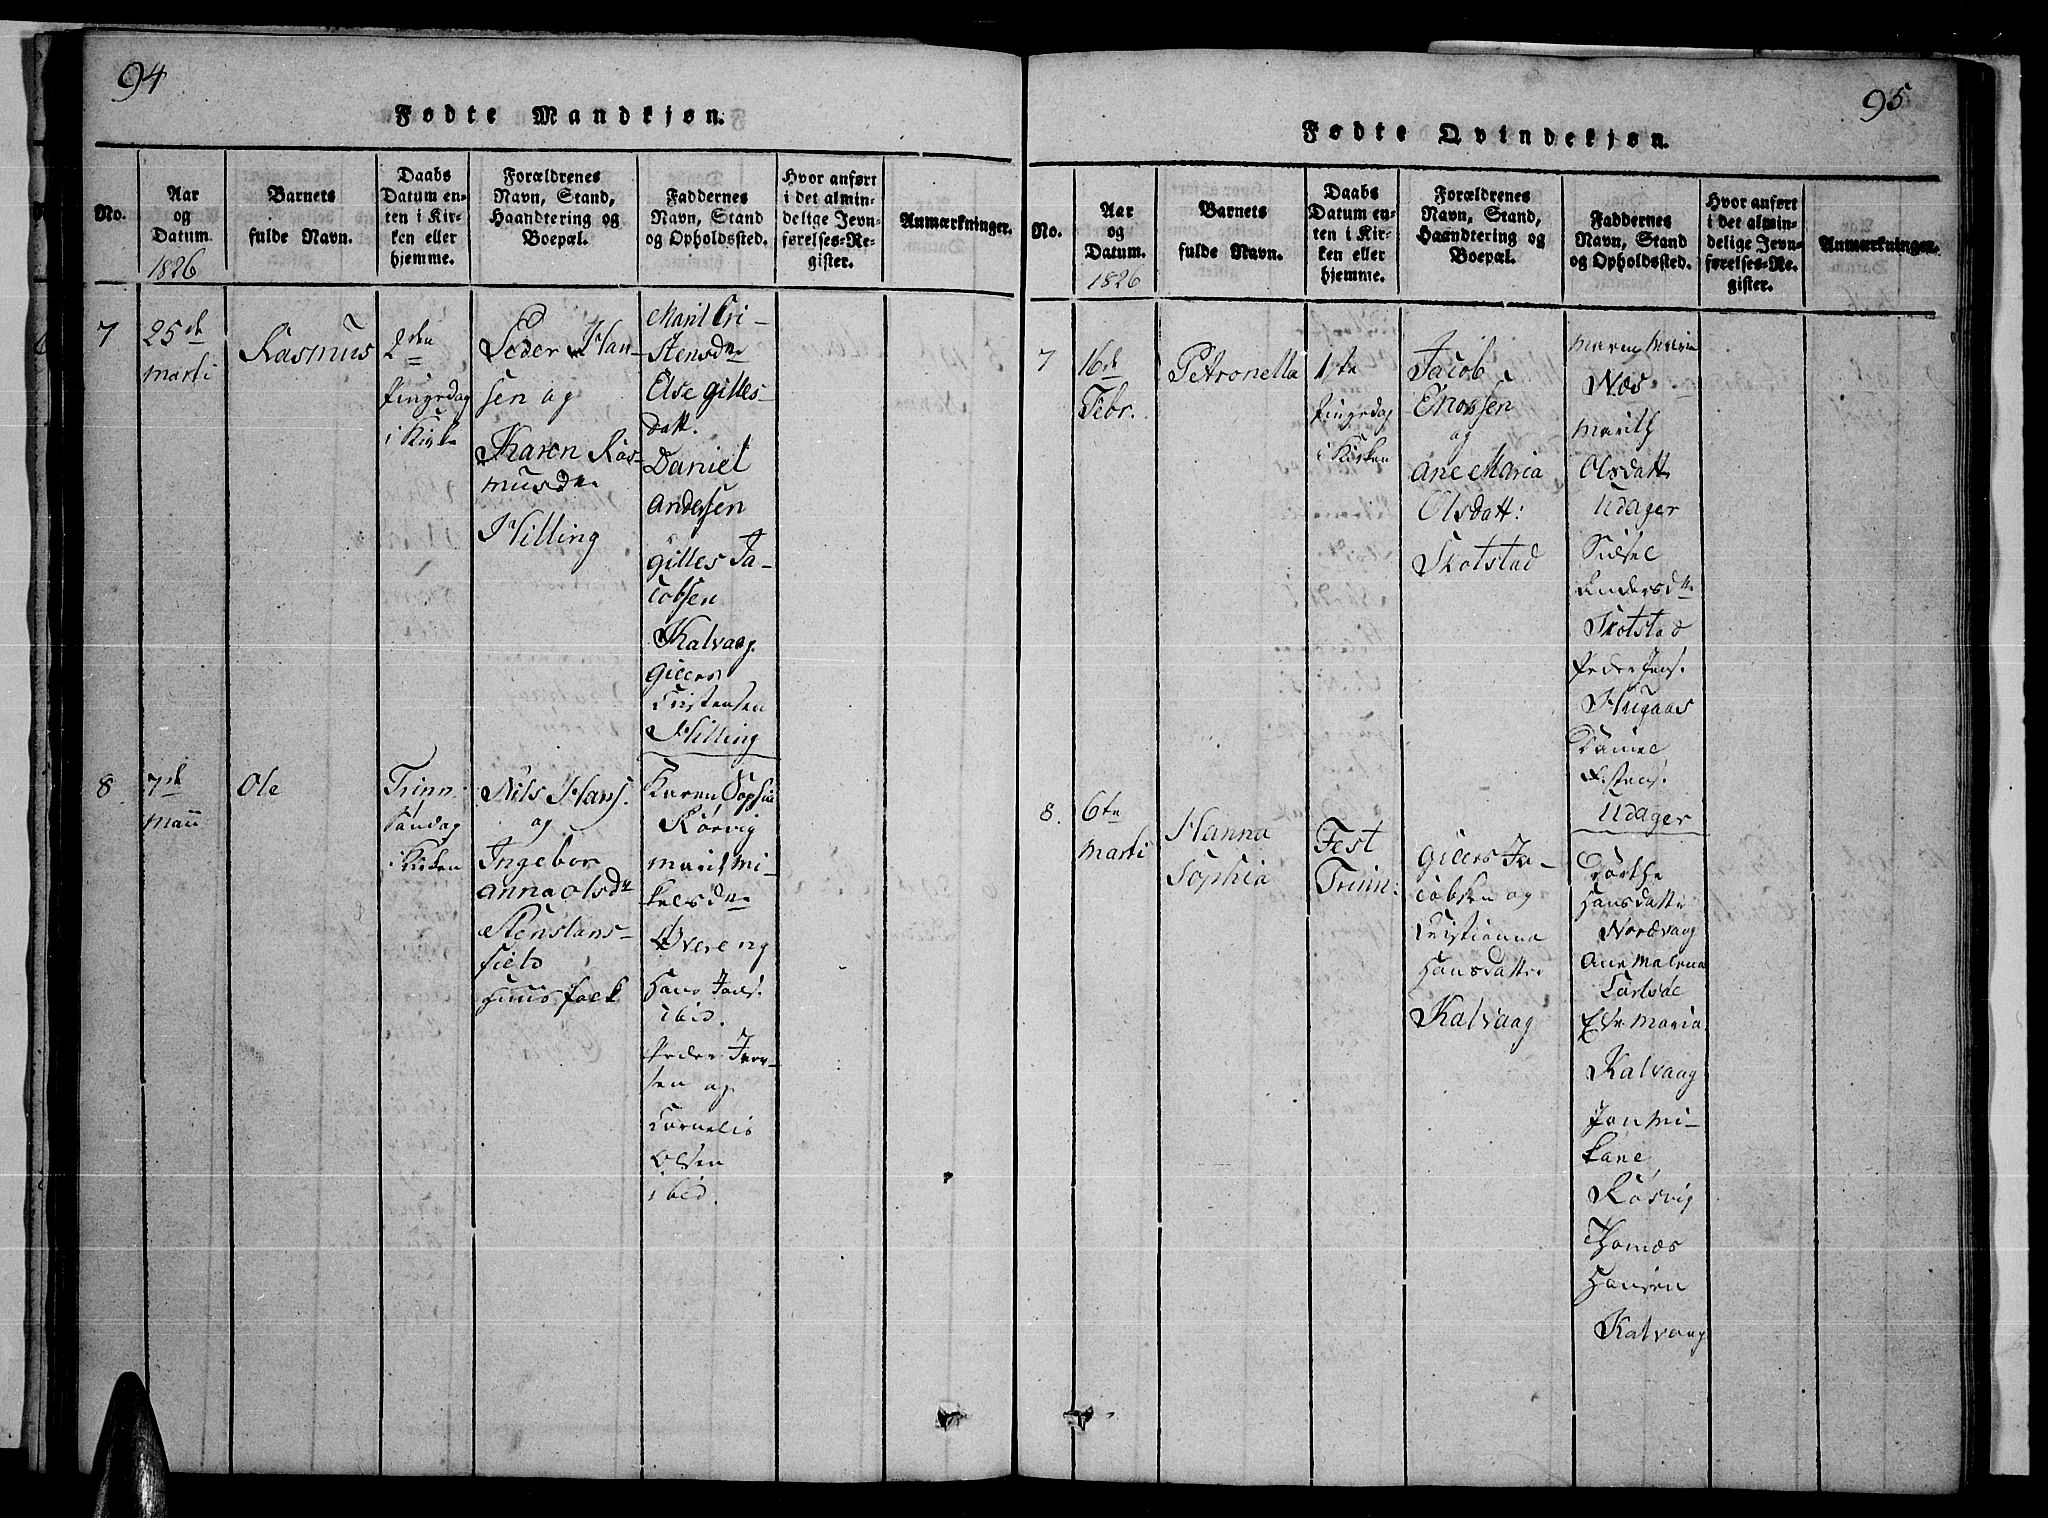 94
Fødte Mandkjøn.
No.
Aar
og
Datum.
1826
Barnets
fulde Navn.
Daabs
Datum en-
ten i Kir-
ken eller
hjemme.
Forældrenes
Navn, Stand,
Haandtering og
Boepæl.
Faddernes
Navn, Stand
og Opholdssted.
Hvor anført
i det almin-
delige Jevn-
førelses-Re-
gister.
Anmærkninger.
7
25de
Marti
Rasmus
2den
Pingsdag
i Kirke
Peder Han-
sen og
Karen Ras-
musdtr
Hilling
Marit Cri-
stensdtr
Else Gilles-
datt.
Daniel
Andersen
Gilles Ja-
cobsen
Kalvaag
Gilers
Cristensen
Hilling
8
7de
Maii
Ole
Trinn:
Søndag
i Kirken
Nils Hans.
og
Ingebor
Anna Olsdtr
Stenslans-
field
Huusfolk
Karen Sophia
Rörvig
Marit Mi-
kelsdtr
Øvereng
Hans
ibid.
Peder
sen og
Cornelis
Olsen
ibid.
95
Fødte Qvindekjøn.
No.
Aar
og
Datum.
1826
Barnets
fulde Navn.
Daabs
Datum en-
ten i Kir-
ken eller
hjemme.
Forældrenes
Navn, Stand,
Haandtering og
Boepæl.
Faddernes
Navn, Stand
og Opholdssted.
Hvor anført
i det almin-
delige Jevn-
førelses-Re-
gister.
Anmærkninger.
7
16de
Febr.
Petronella
1ste
Pingsdag
i Kirken
Jacob
Enossen
og
Ane Maria
Olsdatt:
Skotstad
Maren Maria
Næs
Marith
Olsdatt
Udager
Sidsel
Andersdtr
Skotstad
Peder Jens.
Hugaas
Daniel
Udager
8.
6te
Marti
Hanna
Sophia
Fest
Trinn:
Gilers Ja-
cobsen og
Cristianna
Hansdatter
Kalvaag
Dorthe
Hansdatter
Nordvaag
Ane Malena
Else Maria
Kalvaag
Jon Mi-
Rösvig
Thomas
Hansen
Kalvaag